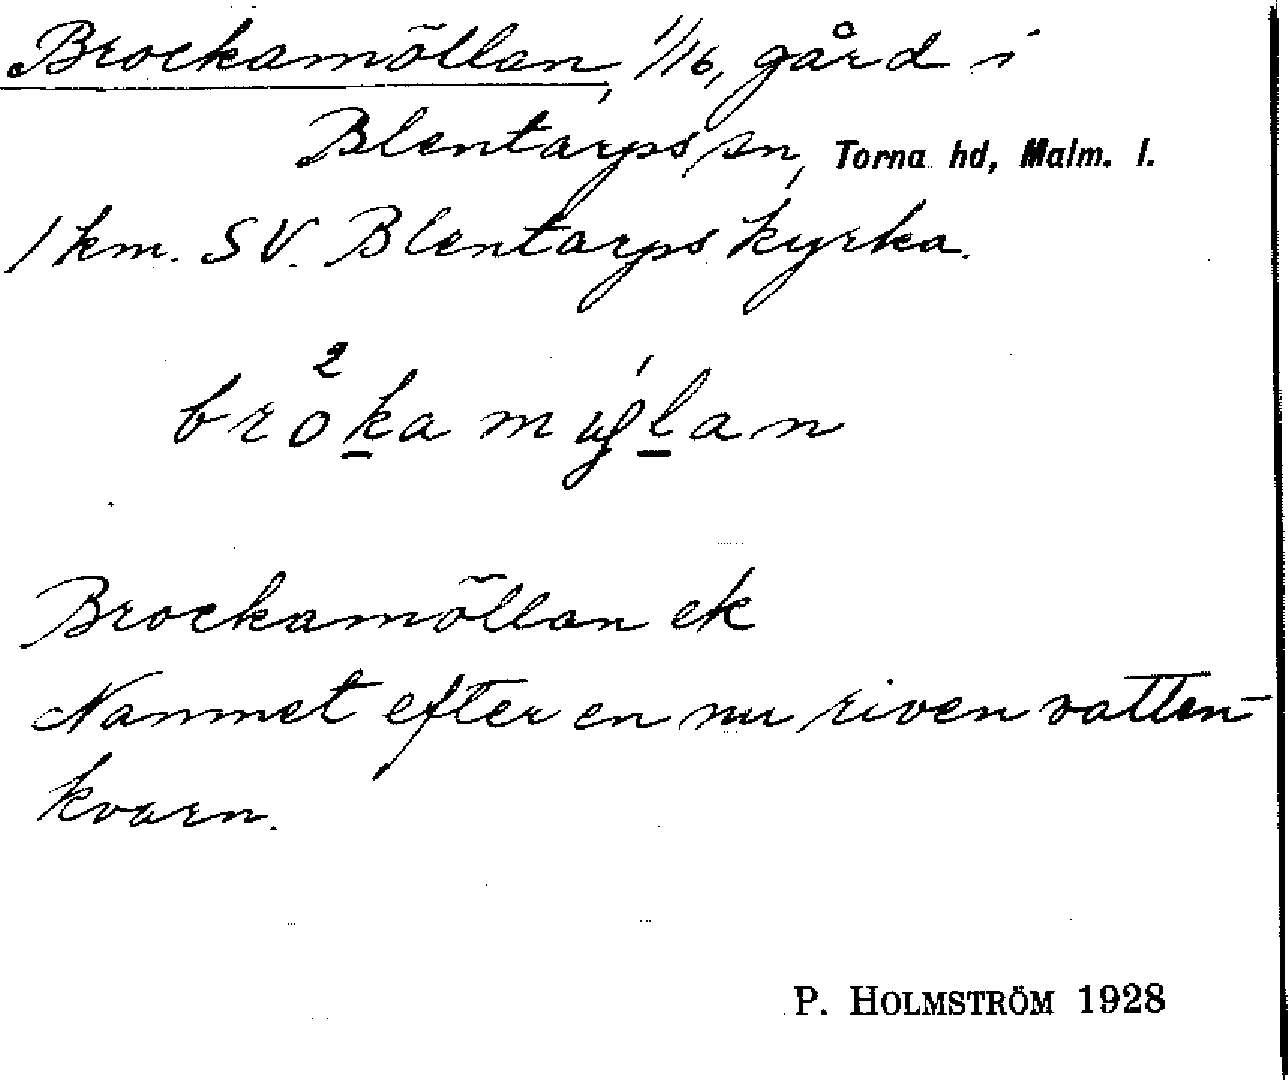 Brockamöllan, 1/16, gård i
Blentarps sn, Torna hd, Malm. l.
1 km. SV. Blentarps kyrka.
Brockamöllan ek
Namnet efter en nu riven vatten-
kvarn.
P. HOLMSTRÖM 1928